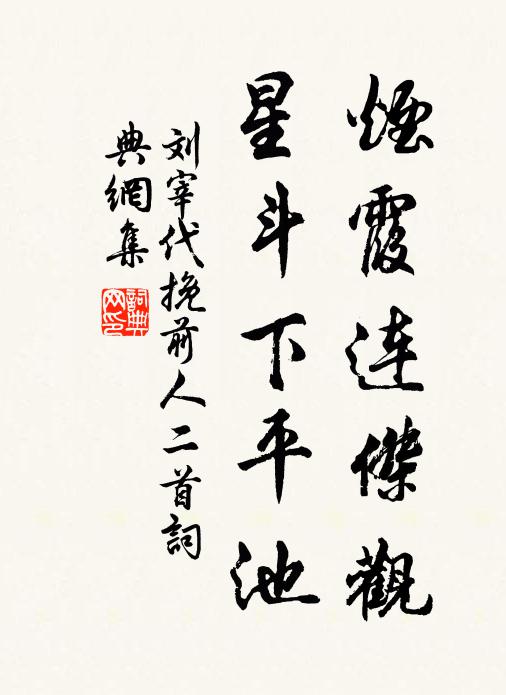 煙霞連傑觀
星斗下平池
刘宰代挽前人二首詞
典網集
詞典網印